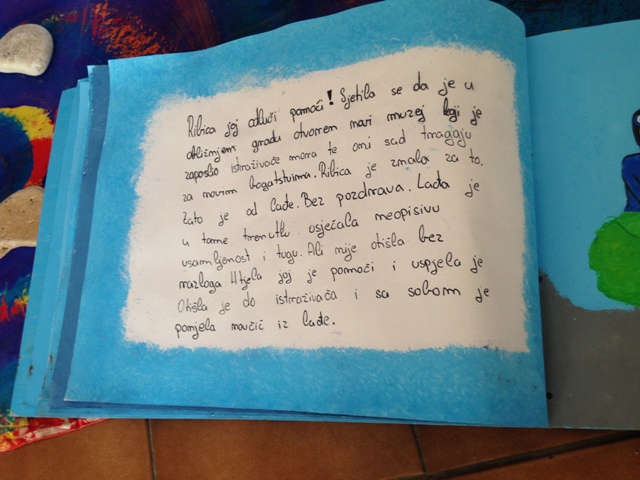 Ribica joj odluči pomoći! Sjetila se da je u
obližnjem gradu otvoren novi muzej koji je
zaposlio istraživače mora te oni sad tragaju
za novim bogatstvima. Ribica je znala za to.
Zato je od lađe. Bez pozdrava. Lađa je
u tome trenutku osjećala neopisivu
usamljenost i tugu. Ali nije otišla bez
razloga Htjela joj je pomoći i uspjela je
Otišla je do istraživača i sa sobom je
ponjela novčić iz lađe.